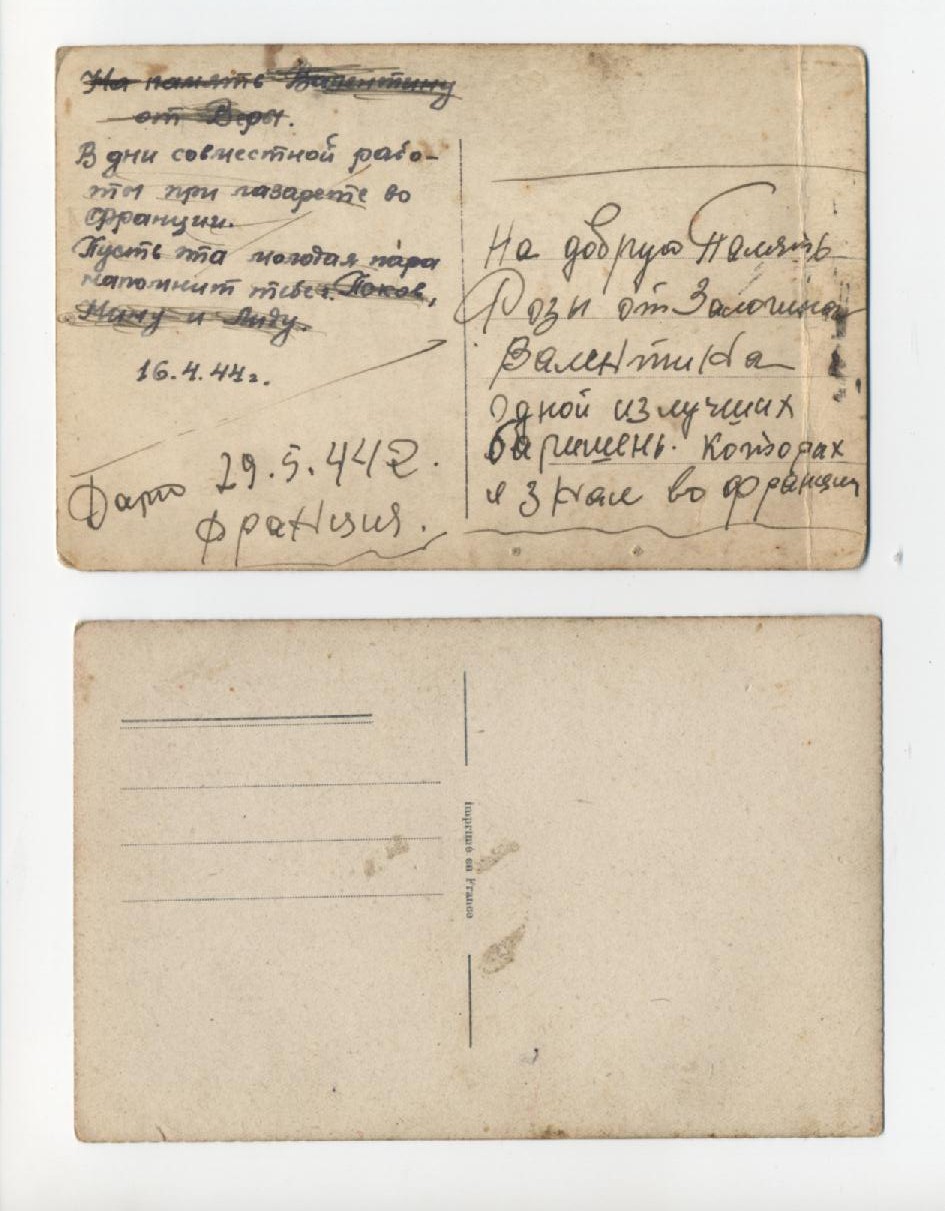 На память Валентину
от Веры.
В дни совместной рабо-
ты при лазарете во
Франции.
Пусть эта молодая пара
напомнит тебе г.
Нину и Лиду.
16.4.44г.
Дато 29.5.44г.
Франция.
На добрую Память
Розы от
Валентина
одной из лучших
баришень. Которых
я знал во франции
imprimé en France